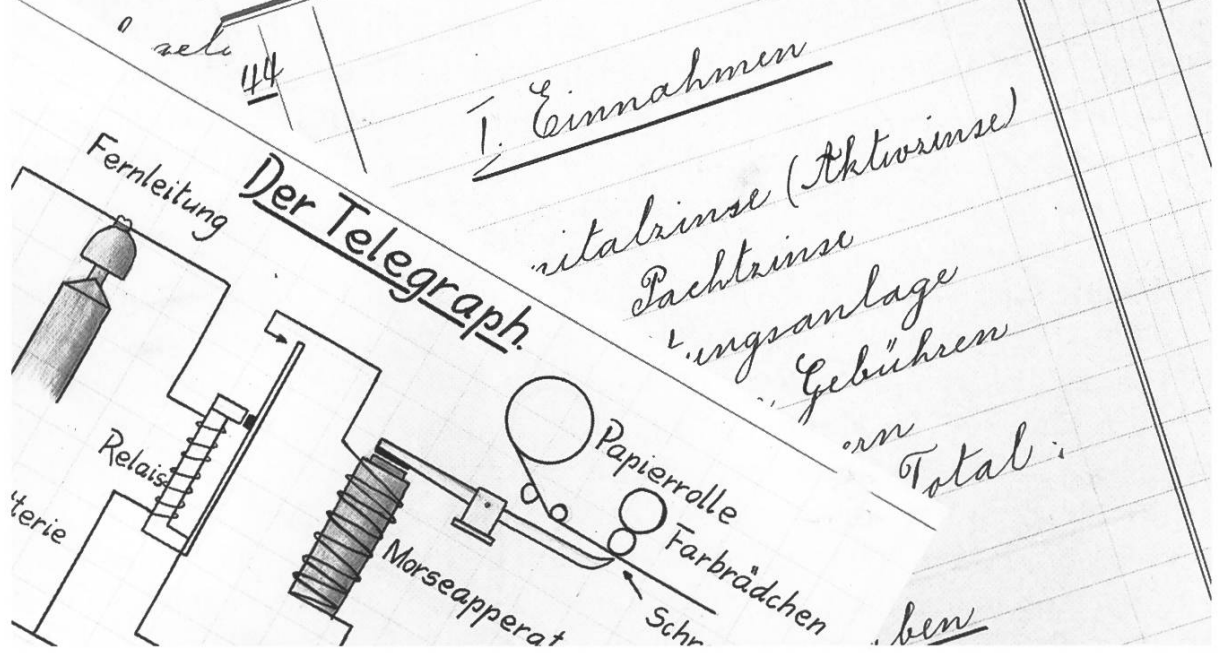 44
I. Einnahmen
italzinse (Aktivzinse)
Pachtzinse
ungsanlage
Gebühren
ern
Total :
ben
Der Telegraph.
Fernleitung
Relais
terie
Morseapperat
Papierrolle
Farbrädchen
Schr